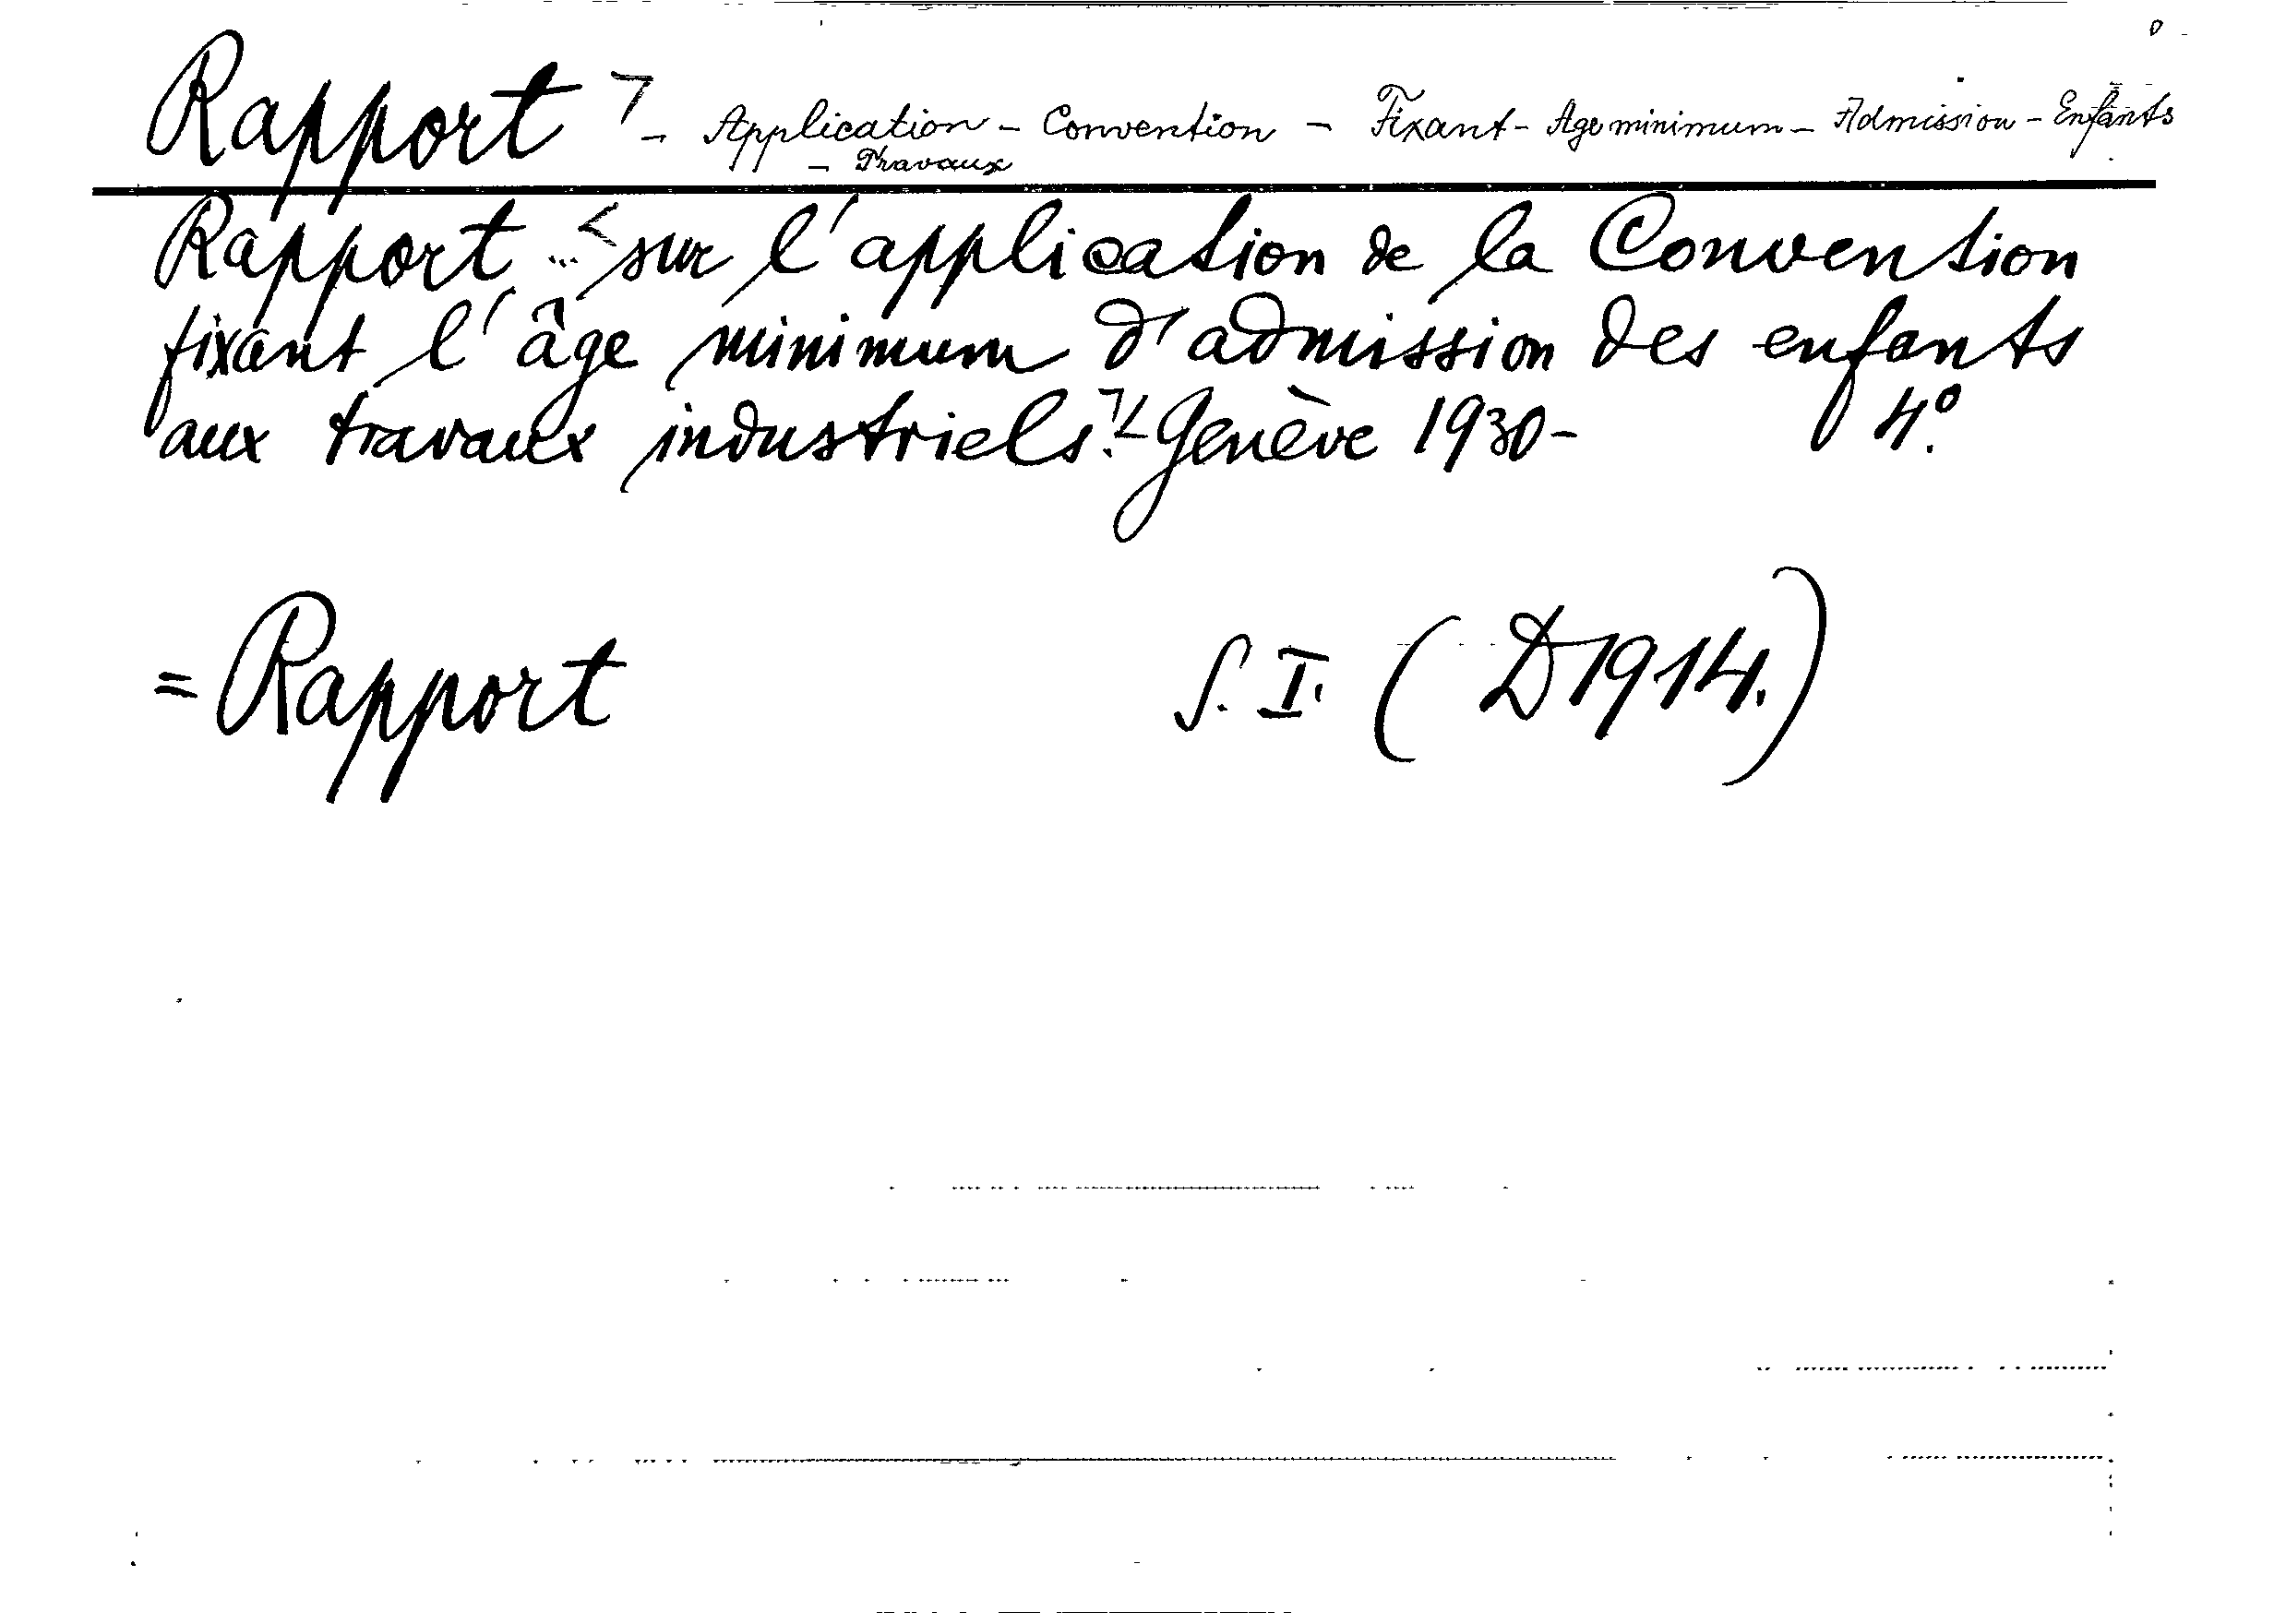 Rapport - Application - Convention - Fixant - Age minimum - Admission - Enfants
- Travaux
Rapport ... sur l'application de la Convention
fixant l'âge minimum d'admission des enfants
aux travaux industriels. - Genève 1930 - 4°.
= Rapport S. I. (D 1914.)